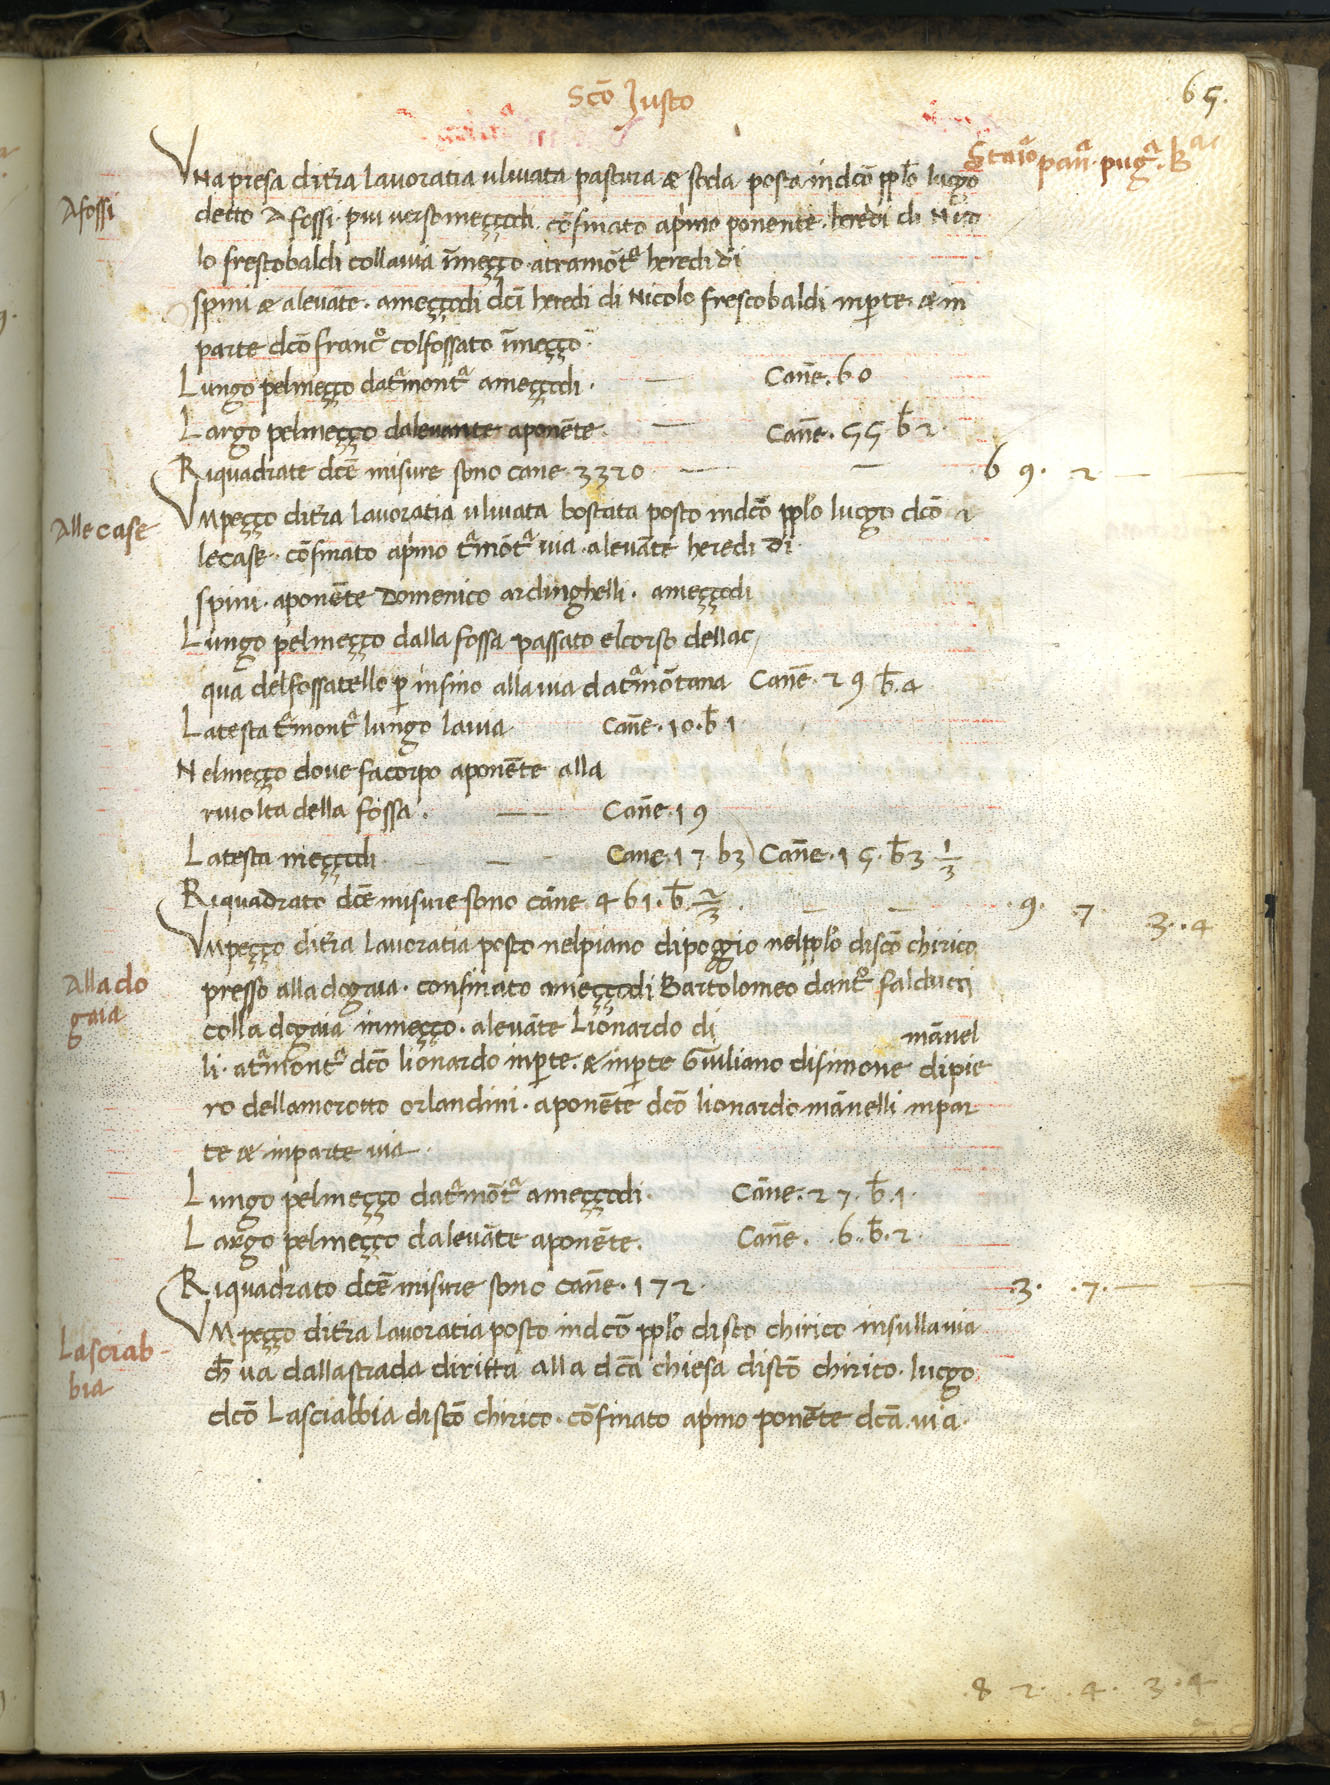 Scō Justo
65.
Staiᵒ panᵃ. pugᵃ. Bᵃᶜ
Vna presa ditr̄a lavoratia ulivata pastura & soda posta indcō pplo luogo
A fossi
detto A fossi piu verso meççodi. cōfinato aprimo ponente. heredi di Nico
lo frescobaldi collavia īmeçço. atramōtᵃ heredi di
spini & alevāte. ameççodi dcī heredi di Nicolo frescobaldi inp̄te. & in
parte dcō francᵒ colfossato īmeçço.
Lungo pelmeçço datr̄montᵃ ameççodi. — Cañe. 60
Largo pelmeçço dalevante aponēte. — Cañe. 55 b̄ 2.
Riquadrate dcē misure sono cane. 3320 — — 69. 2 — —
Vmpeçço ditr̄a lavoratia ulivata boscata posto indcō pplo luogo dcō a
Alle case
lecase. cōfinato aprimo tr̄mōtᵃ via. alevāte heredi di
spini. aponēte Domenico ardinghelli. ameççodi
Lungo pelmeçço dalla fossa passato elcorso dellac/
qua delfossatello p̄ insino allavia datr̄mōtana Canē. 29 b̄. 4
Latesta tr̄montᵃ lungo lavia. Cañe. 10. b̄ 1
Nelmeçço dove facorpo aponēte alla
rivolta della fossa. — — Cañe. 19
Latesta meççodi — — Cane. 17. b3) Cañe. 15. b̄ 3 1/3
Riquadrato dcē misure sono cāne 461. b̄. 2/3. — — . 9. 7. 3. . 4
Vmpeçço ditr̄a lavoratia posto nelpiano dipoggio nelpplo discō chirico
Alla do
gaia
presso alladogaia. confinato ameççodi Bartolomeo dantᵒ falducci
colla dogaia inmeçço. alevāte Lionardo di manēl
li. atr̄montᵃ dcō lionardo inp̄te. & inp̄te Giuliano disimone dipie
ro dellamorotto orlandini. aponēte dcō lionardo mānelli inpar
te & inparte via.
Lungo pelmeçço datr̄mōtᵃ ameççodi. Cāne. 27. b̄. 1.
Largo pelmeçço dalevāte aponēte. Cañe. . 6. . b̄. 2
Riquadrato dcē misure sono cañe. 172. .3. .7. — —
Vmpeçço ditr̄a lavoratia posto indcō pplo discō chirico insullavia
Lasciab-
bia
ch̄ va dallastrada diritta alla dcā chiesa discō chirico. luogo
dcō Lasciabbia discō chirico. cōfinato aprimo ponēte dcā via.
. 8 2. . 4. 3. 4